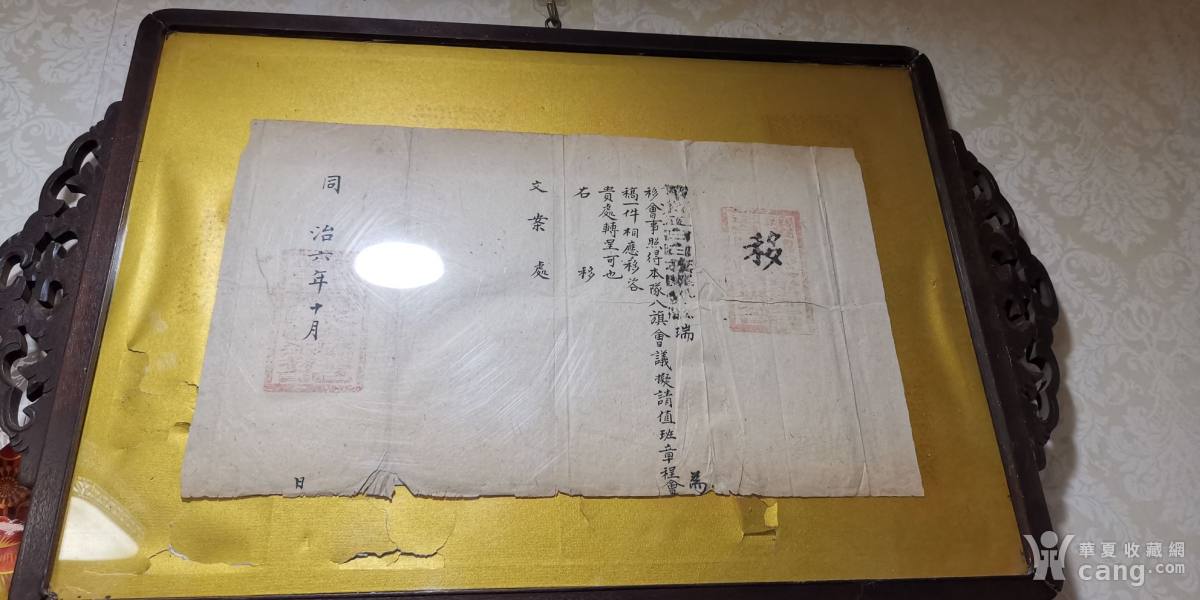 移
瑞
為
移會事照得本隊八旗會議擬請值班章程會
稿一件相應移咨
貴處轉呈可也
右移
文案處
同治六年十月
日
華夏收藏網
cang.com